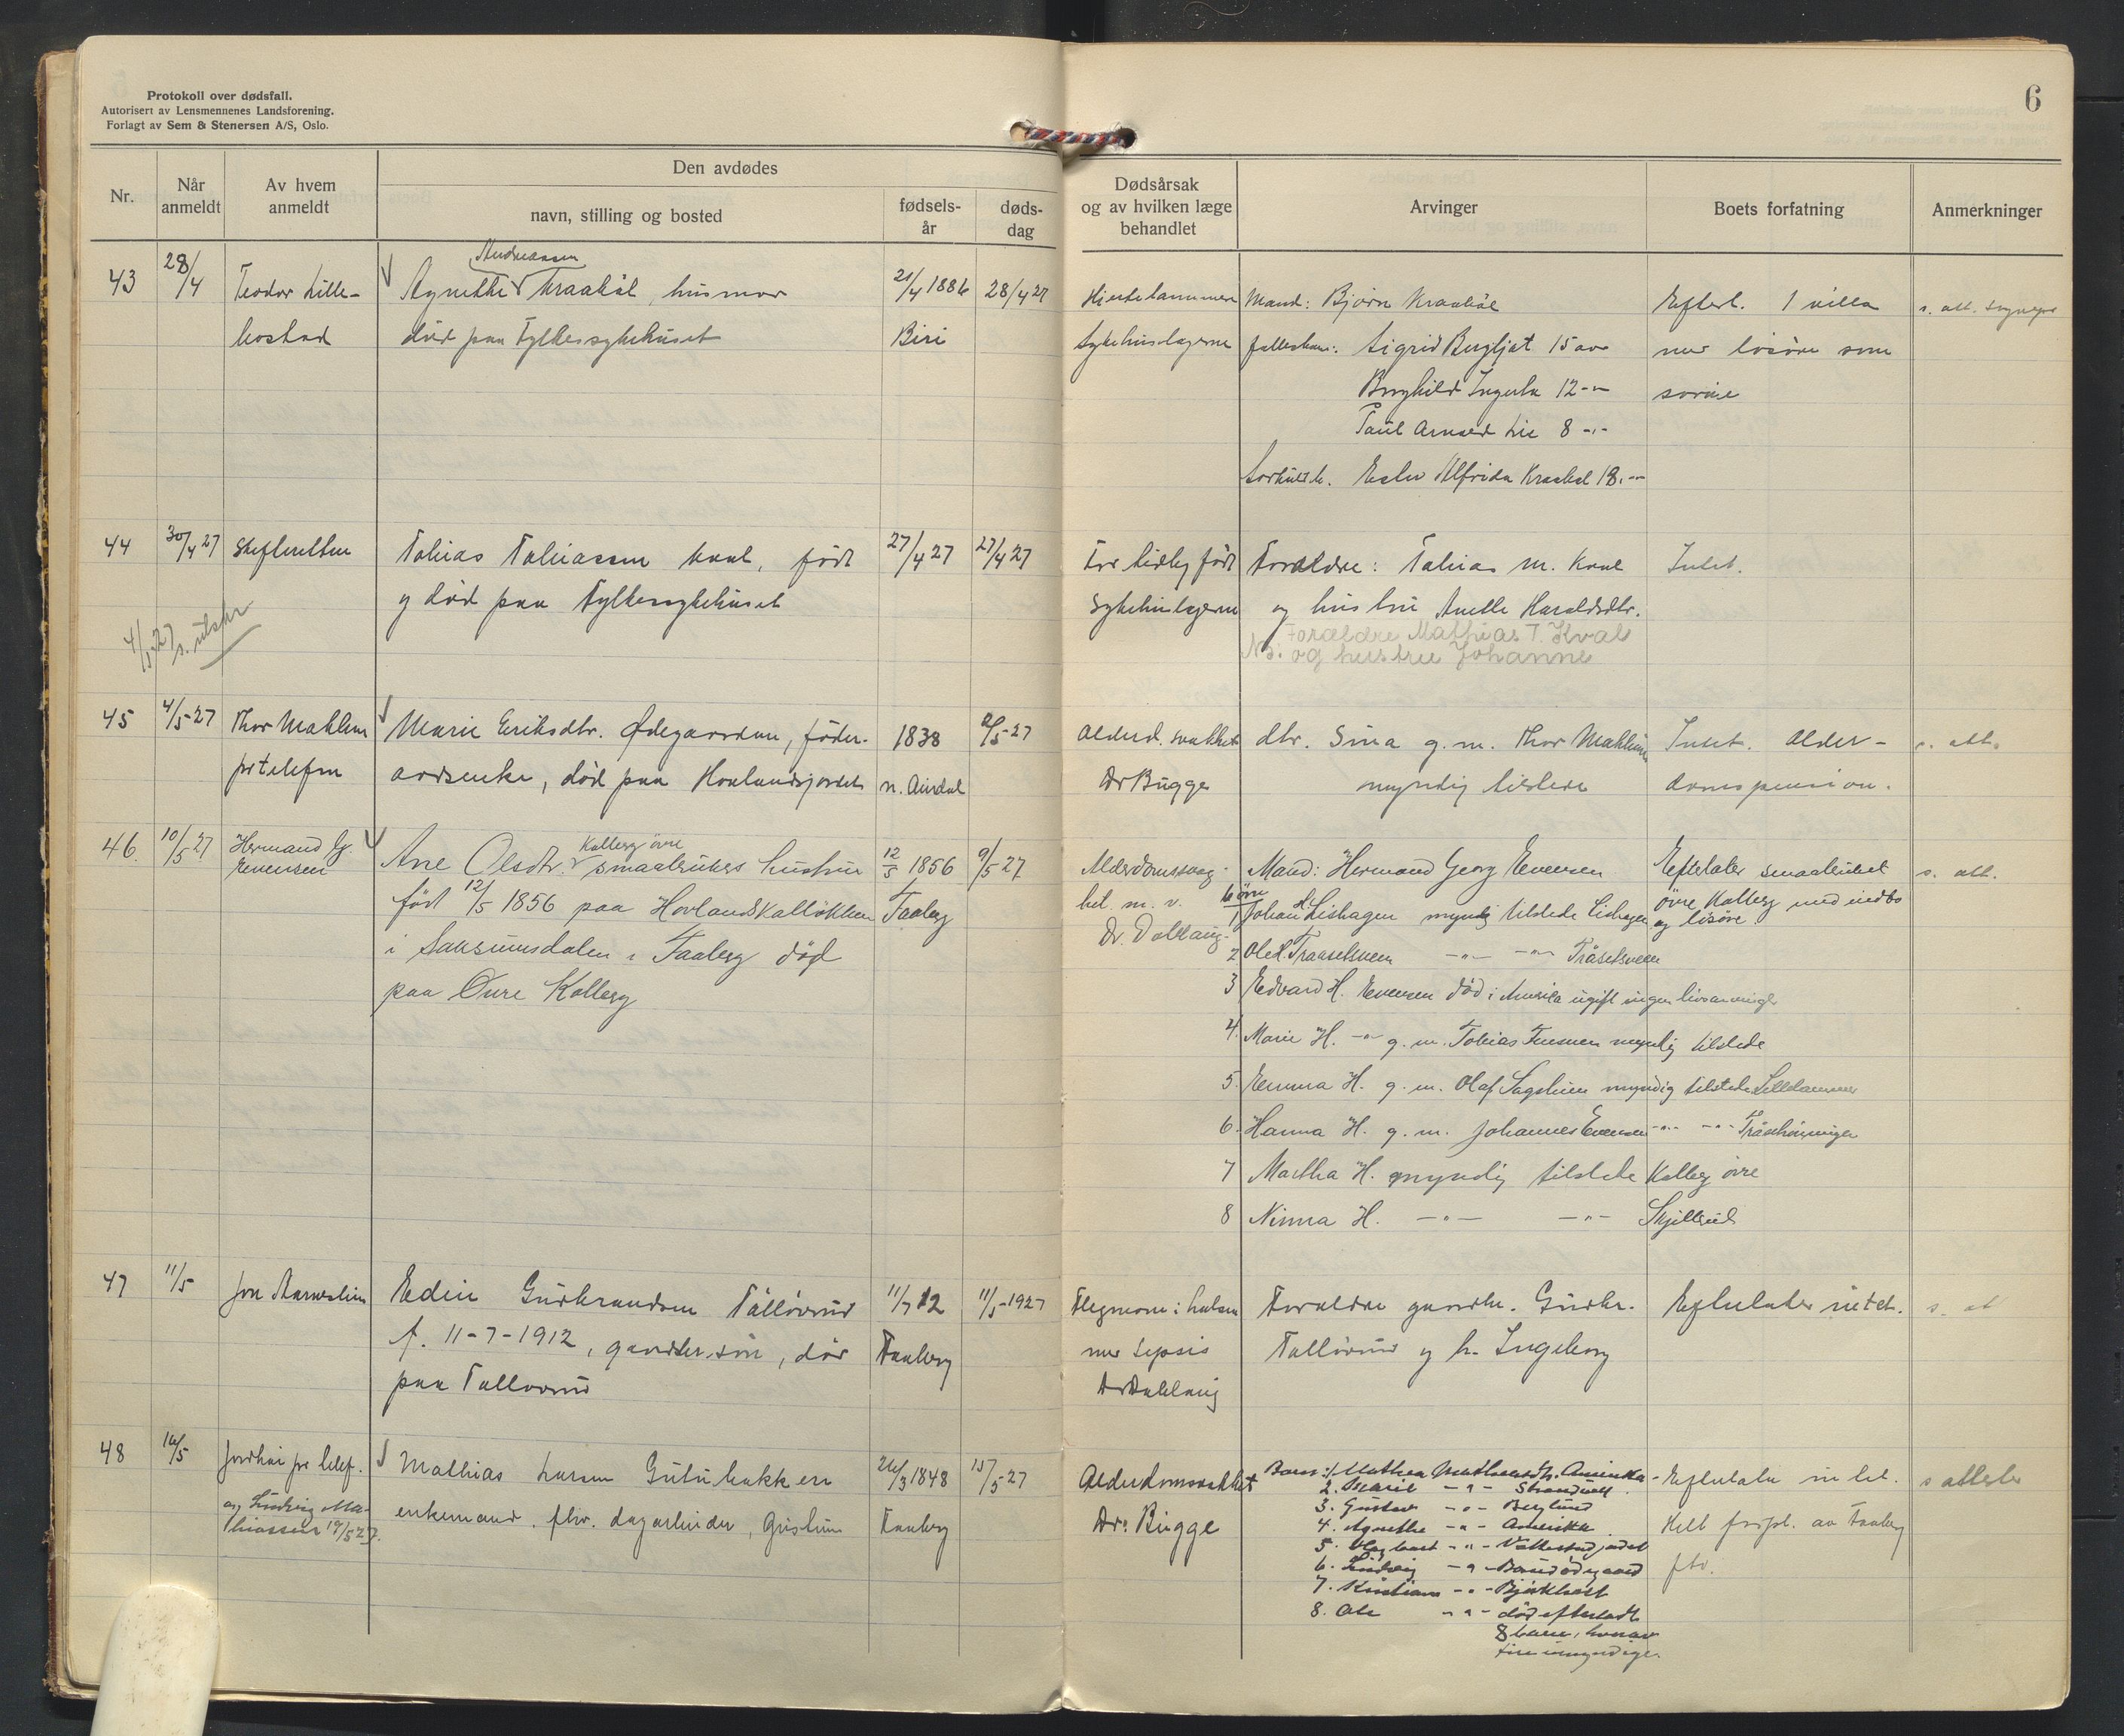 Protokoll over dødsfall.
Autorisert av Lensmennenes Landsforening.
Forlagt av Sem & Stenersen A/S, Oslo.
6
Nr.
Når anmeldt
Av hvem anmeldt
Den avdødes
navn, stilling og bosted
fødsels-år
døds-dag
Dødsårsak og av hvilken læge behandlet
Arvinger
Boets forfatning
Anmerkninger
43
28/4
Teodor Lille-
bostad
Andreassen
Agnethe Kraabøl, husmor
død paa Fylkessykehuset
21/4 1886
Biri
28/4 27
Sykehuslægerne
Mand: Bjørn Kraabøl
Sigrid Bergljot 15 aar
Borghild Ingerda 12 -"-
Paul Arnold 8 -"-
Alfrida Kraabøl 18 -"-
Efterl. 1 villa
med løsøre som
særeie
s. att.
44
30/4 27
Skifteretten
Tobias Tobiassen Kval, født
og død paa Fylkessykehuset
27/4 27
27/4 27
For tidlig født
Sykehuslægerne
Forældre: Tobias M. Kval
og hustru Anette Haraldsdtr.
Forældre Mathias T. Kval
NB: og hustru Johanne
Intet.
4/5 27 s. utskr
45
4/5-27
Thor Mæhlum
pr telefon
Marie Eriksdtr. Ødegaarden, føder-
aadsenke, død paa Hovlandsjordet
1838
n. Aurdal
2/5-27
Alderd. svakhet
Dr Bugge
dtr. Sina g.m. Thor Mæhlum
myndig tilstede
Intet. Alder-
domspension.
s. att.
46.
10/5 27
Hermand Gg.
Evensen
Kalberg øvre
Ane Olsdtr. smaabrukers hustru
født 12/5 1856 paa Hovlandskalløkken
i Saksumsdalen i Faaberg død
paa Øvre Kolberg
12/5 1856
Faaberg
9/5 27
Alderdomssvag-
het m. v.
Dr. Dahlaug
Mand: Hermand Georg Evensen
1 Johan H. Lishagen myndig tilstede Lishagen
2 Ole H. Traasetsveen -"- -"- Tråsetsveen
3 Edvard H. Evensen død i Amerika ugift ingen livsarvinger
4. Marie H. -"- g. m. Tobias myndig tilstede
5. Emma H. g. m. Olaf Sagstuen myndig tilstede Lillehammer
6. Hanna H. g. m. Johannes Evensen -"- -"-
7 Martha H. myndig tilstede Kolberg øvre
8 Ninna H. -"- -"- Skjellerud
Efterlater smaabruket
øvre Kolberg med indbo
og løsøre
s. att.
47
11/5
Jon Aarneslien
Edin Gudbrandsen Talløvrud
f. 11-7-1912, gaardbr. søn, død
paa Talløvrud
11/7 12
Faaberg
11/5-1927
Flegmone i halsen
med Sepsis
Dr Dahlaug
Forældre gaardbr. Gudbr.
Talløvrud og h. Ingeborg
Efterlater intet.
s. at
48
16/5
Jordhøi pr telef.
og Ludvig Ma-
thiassen 19/5 27.
Mathias Larsen Gutubakken
enkemand. fhv. dagarbeider,
26/3 1848
Faaberg
15/5-27
Alderdomssvakhet
Dr. Bugge
Barn: 1. Mathea Mathiasdtr. Amerika
2. Marie -"- Strandvold
3. Gustav -"- Berglund
4. Agnethe -"- Amerika
5.
6. Ludvig -"-
7. Kristiane -"- Bjørkhaat
8. Ole -"- død efterladt
8 barn, hvorav
fire umyndige.
Efterlater intet.
Helt forpl. av Faaberg
ftv.
s attest